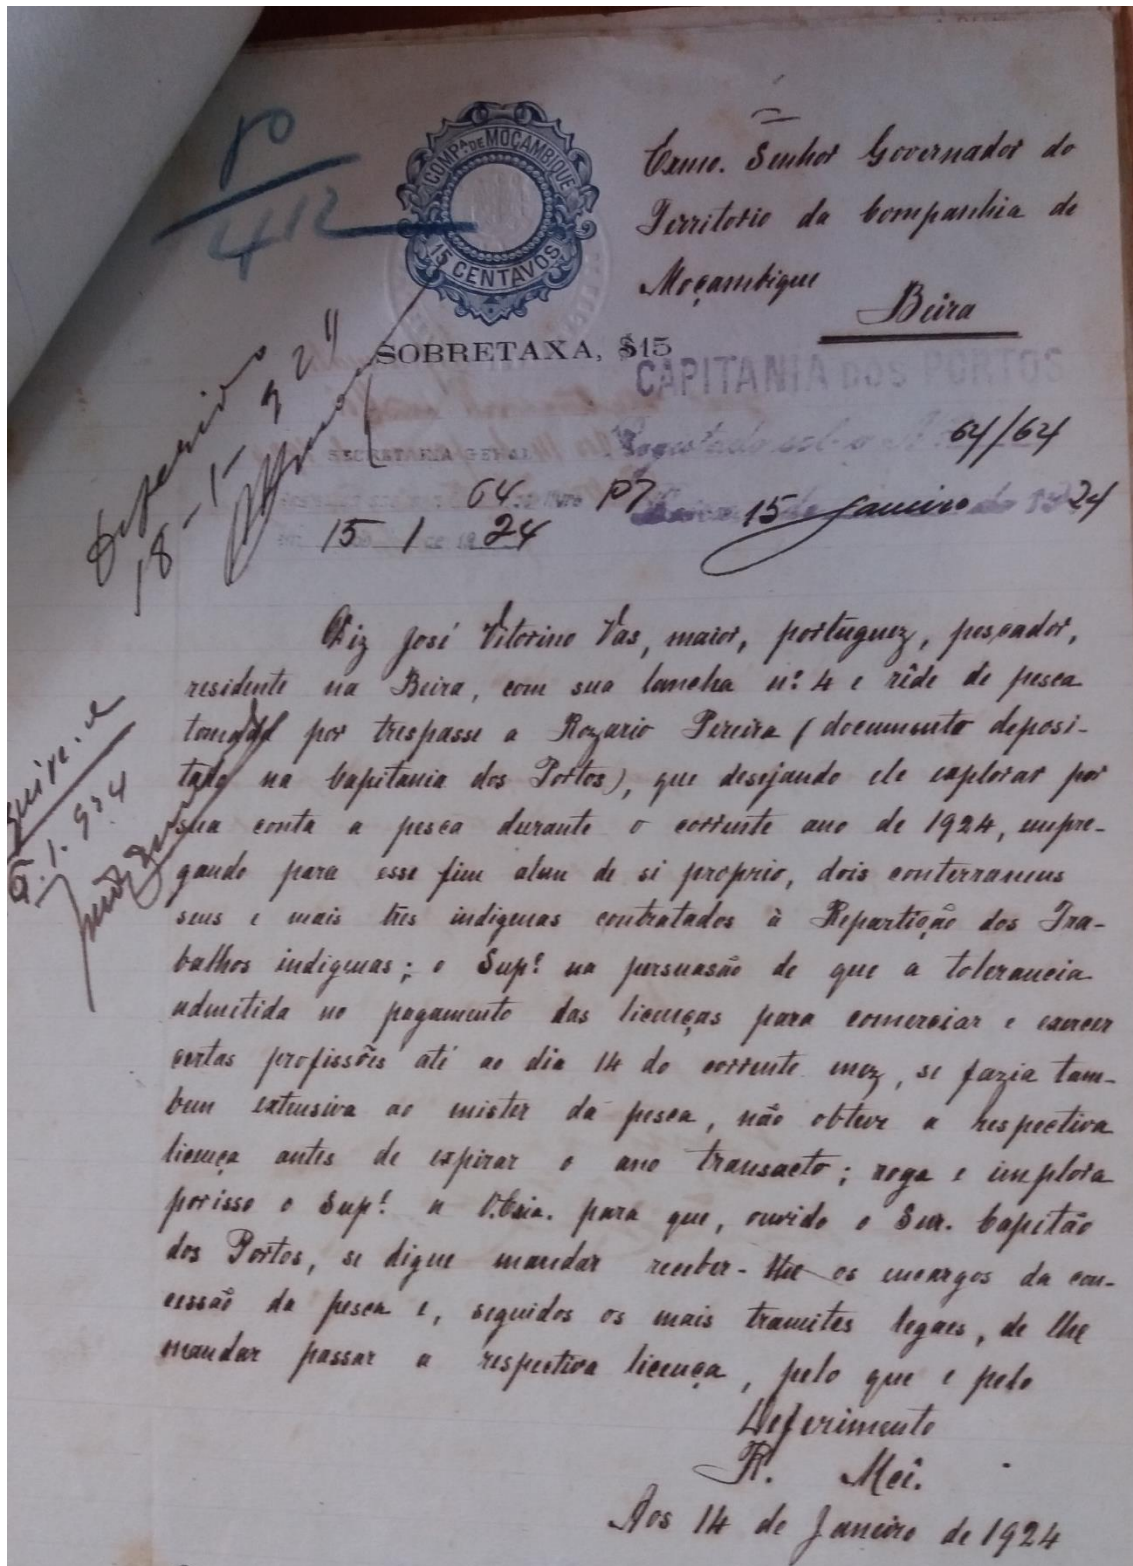 80
412
COMPª DE MOÇAMBIQUE
15 CENTAVOS
SOBRETAXA, $15
Exmo. Senhor Governador do
Territorio da Companhia de
Moçambique
Beira
CAPITANIA DOS PORTOS
Registado sob o Nº 64/64
15 Janeiro de 1924
SECRETARIA GERAL
64 P7
15 1 de 1924
Deferido
18-1-924
1.924
Diz José Vitorino Vas, maior, portuguez, pescador,
residente na Beira, com sua lancha nº 4 e rêde de pesca
tomada por trespasse a Rozario Pereira (documento deposi-
tado na Capitania dos Portos), que desejando ele explorar por
sua conta a pesca durante o corrente ano de 1924, empre-
gando para esse fim alem de si proprio, dois conterraneus
seus e mais três indigenas contratados à Repartição dos Tra-
balhos indigenas; o Supe na persuasão de que a tolerancia
admitida no pagamento das licenças para comerciar e exercer
certas profissões até ao dia 14 do corrente mez, se fazia tam-
bem extensiva ao mister da pesca, não obteve a respectiva
licença antes de expirar o ano transacto; roga e implora
porisso o Supe a V.Exia. para que, ouvido o Snr. Capitão
dos Portos, se digne mandar receber-lhe os encargos da con-
cessão da pesca e, seguidos os mais tramites legaes, de lhe
mandar passar a respectiva licença, pelo que e pelo
Deferimento
R. Mcê.
Aos 14 de Janeiro de 1924